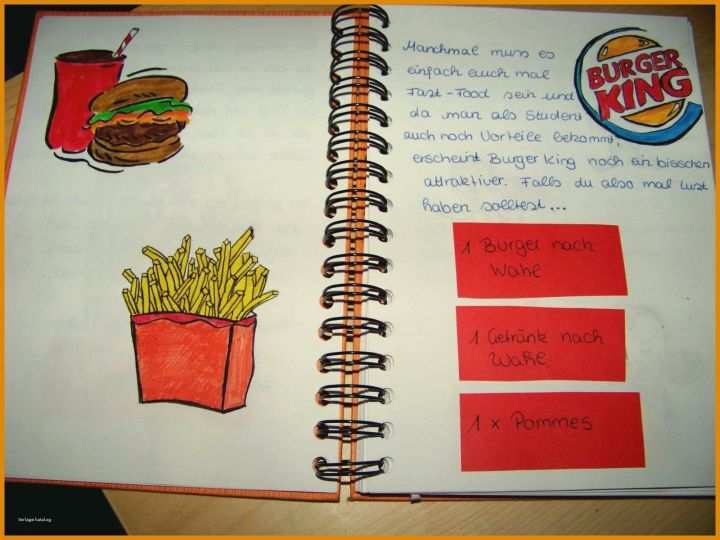 Manchmal muss es
einfach auch mal
Fast-Food sein und
da man als Student
auch noch Vorteile bekommt,
erscheint Burger King noch ein bisschen
attraktiver. Falls du also mal Lust
haben solltest...
BURGER
KING
1 Burger nach
Wahl
1 Getränk nach
Wahl
1 x Pommes